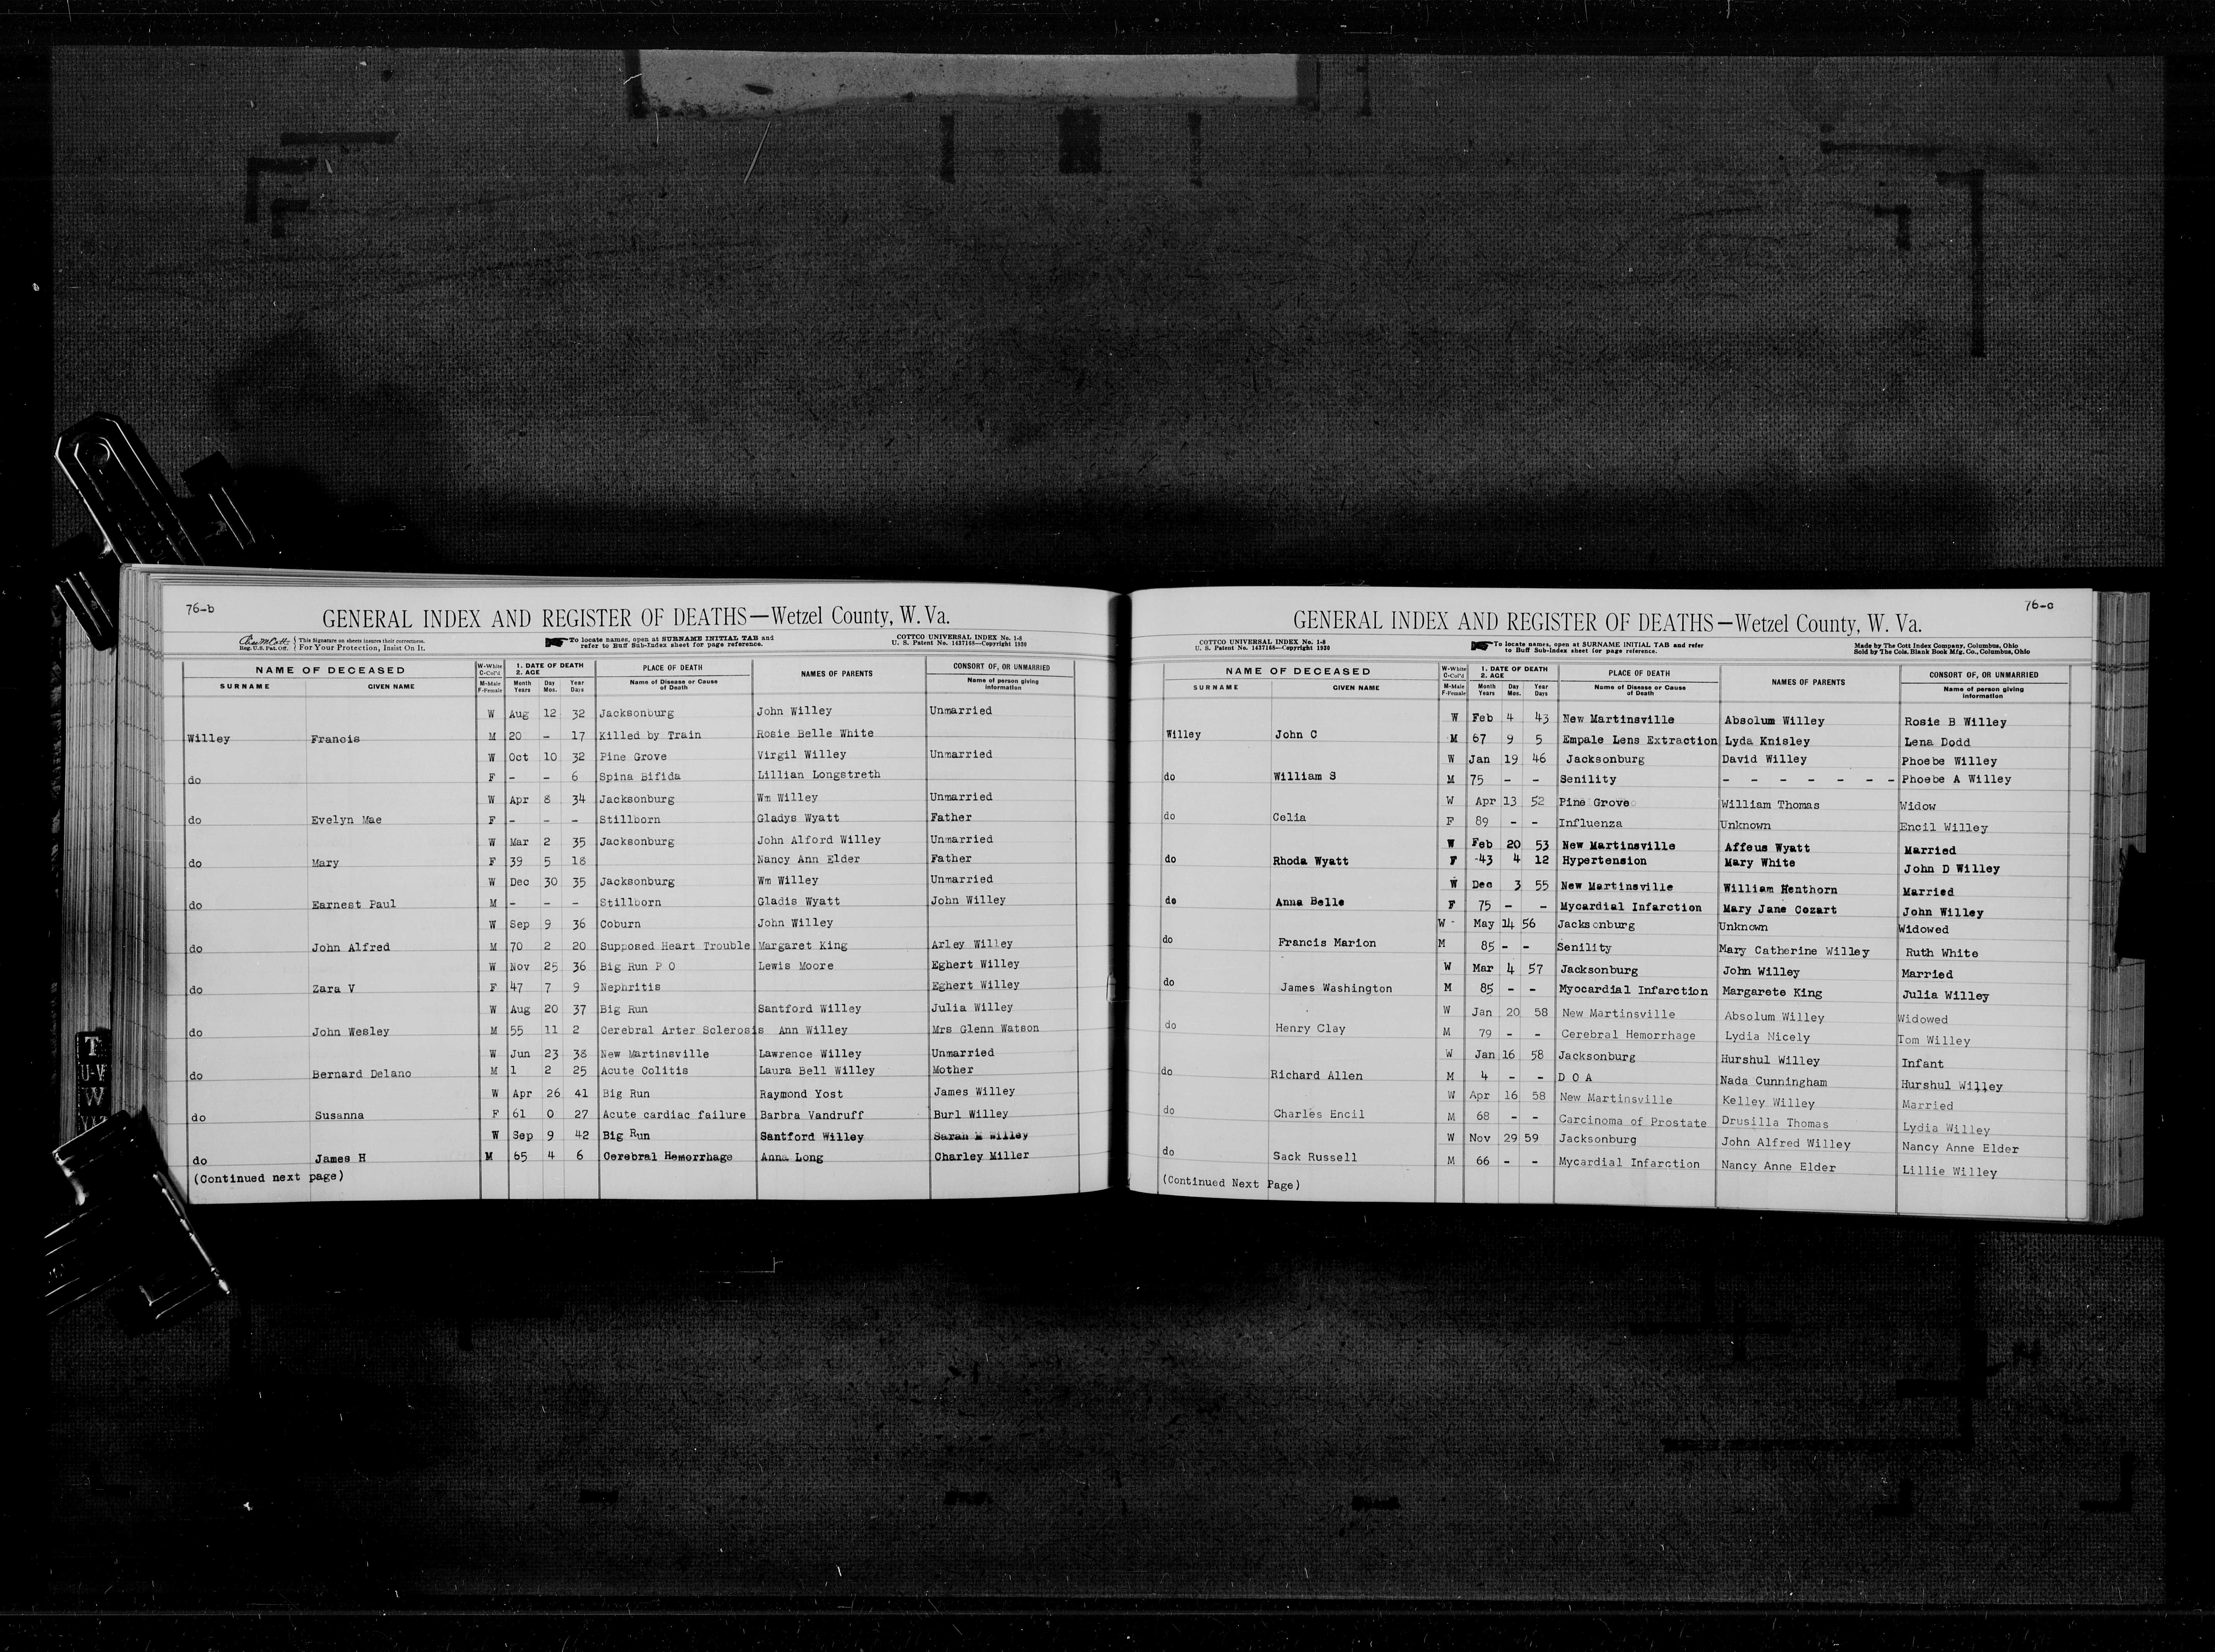 76-b
GENERAL INDEX AND REGISTER OF DEATHS—Wetzel County, W. Va.
Reg. U.S. Pat. Off. { This Signature on sheets insures their correctness. For Your Protection, Insist On It.
To locate names, open at SURNAME INITIAL TAB and refer to Buff Sub-Index sheet for page reference.
COTTCO UNIVERSAL INDEX No. 1-8
U. S. Patent No. 1437168—Copyright 1930
NAME OF DECEASED W-White C-Col'd 1. DATE OF DEATH 2. AGE PLACE OF DEATH NAMES OF PARENTS CONSORT OF, OR UNMARRIED
SURNAME GIVEN NAME M-Male F-Female Month Years Day Mos. Year Days Name of Disease or Cause of Death Name of person giving information
W Aug 12 32 Jacksonburg John Willey Unmarried
Willey Francis M 20 - 17 Killed by Train Rosie Belle White
W Oct 10 32 Pine Grove Virgil Willey Unmarried
do F - - 6 Spina Bifida Lillian Longstreth
W Apr 8 34 Jacksonburg Wm Willey Unmarried
do Evelyn Mae F - - - Stillborn Gladys Wyatt Father
W Mar 2 35 Jacksonburg John Alford Willey Unmarried
do Mary F 39 5 18 Nancy Ann Elder Father
W Dec 30 35 Jacksonburg Wm Willey Unmarried
do Earnest Paul M - - - Stillborn Gladis Wyatt John Willey
W Sep 9 36 Coburn John Willey
do John Alfred M 70 2 20 Supposed Heart Trouble Margaret King Arley Willey
W Nov 25 36 Big Run P O Lewis Moore Eghert Willey
do Zara V F 47 7 9 Nephritis Eghert Willey
W Aug 20 37 Big Run Santford Willey Julia Willey
do John Wesley M 55 11 2 Cerebral Arter Sclerosis Ann Willey Mrs Glenn Watson
W Jun 23 38 New Martinsville Lawrence Willey Unmarried
do Bernard Delano M 1 2 25 Acute Colitis Laura Bell Willey Mother
W Apr 26 41 Big Run Raymond Yost James Willey
do Susanna F 61 0 27 Acute cardiac failure Barbra Vandruff Burl Willey
W Sep 9 42 Big Run Santford Willey Sarah M Willey
do James H M 65 4 6 Cerebral Hemorrhage Anna Long Charley Miller
(Continued next page)
T
U-V
W
76-c
GENERAL INDEX AND REGISTER OF DEATHS—Wetzel County, W. Va.
COTTCO UNIVERSAL INDEX No. 1-8
U. S. Patent No. 1437168—Copyright 1930
To locate names, open at SURNAME INITIAL TAB and refer to Buff Sub-Index sheet for page reference.
Made by The Cott Index Company, Columbus, Ohio
Sold by The Cols. Blank Book Mfg. Co., Columbus, Ohio
NAME OF DECEASED W-White C-Col'd 1. DATE OF DEATH 2. AGE PLACE OF DEATH NAMES OF PARENTS CONSORT OF, OR UNMARRIED
SURNAME GIVEN NAME M-Male F-Female Month Years Day Mos. Year Days Name of Disease or Cause of Death Name of person giving information
W Feb 4 43 New Martinsville Absolum Willey Rosie B Willey
Willey John C M 67 9 5 Empale Lens Extraction Lyda Knisley Lena Dodd
W Jan 19 46 Jacksonburg David Willey Phoebe Willey
do William S M 75 - - Senility - - - - - - - Phoebe A Willey
W Apr 13 52 Pine Grove William Thomas Widow
do Celia F 89 - - Influenza Unknown Encil Willey
W Feb 20 53 New Martinsville Affeus Wyatt Married
do Rhoda Wyatt F 43 4 12 Hypertension Mary White John D Willey
W Dec 3 55 New Martinsville William Henthorn Married
do Anna Belle F 75 - - Mycardial Infarction Mary Jane Cozart John Willey
W May 14 56 Jacksonburg Unknown Widowed
do Francis Marion M 85 - - Senility Mary Catherine Willey Ruth White
W Mar 4 57 Jacksonburg John Willey Married
do James Washington M 85 - - Myocardial Infarction Margarete King Julia Willey
W Jan 20 58 New Martinsville Absolum Willey Widowed
do Henry Clay M 79 - - Cerebral Hemorrhage Lydia Nicely Tom Willey
W Jan 16 58 Jacksonburg Hurshul Willey Infant
do Richard Allen M 4 - - D O A Nada Cunningham Hurshul Willey
W Apr 16 58 New Martinsville Kelley Willey Married
do Charles Encil M 68 - - Carcinoma of Prostate Drusilla Thomas Lydia Willey
W Nov 29 59 Jacksonburg John Alfred Willey Nancy Anne Elder
do Sack Russell M 66 - - Mycardial Infarction Nancy Anne Elder Lillie Willey
(Continued Next Page)